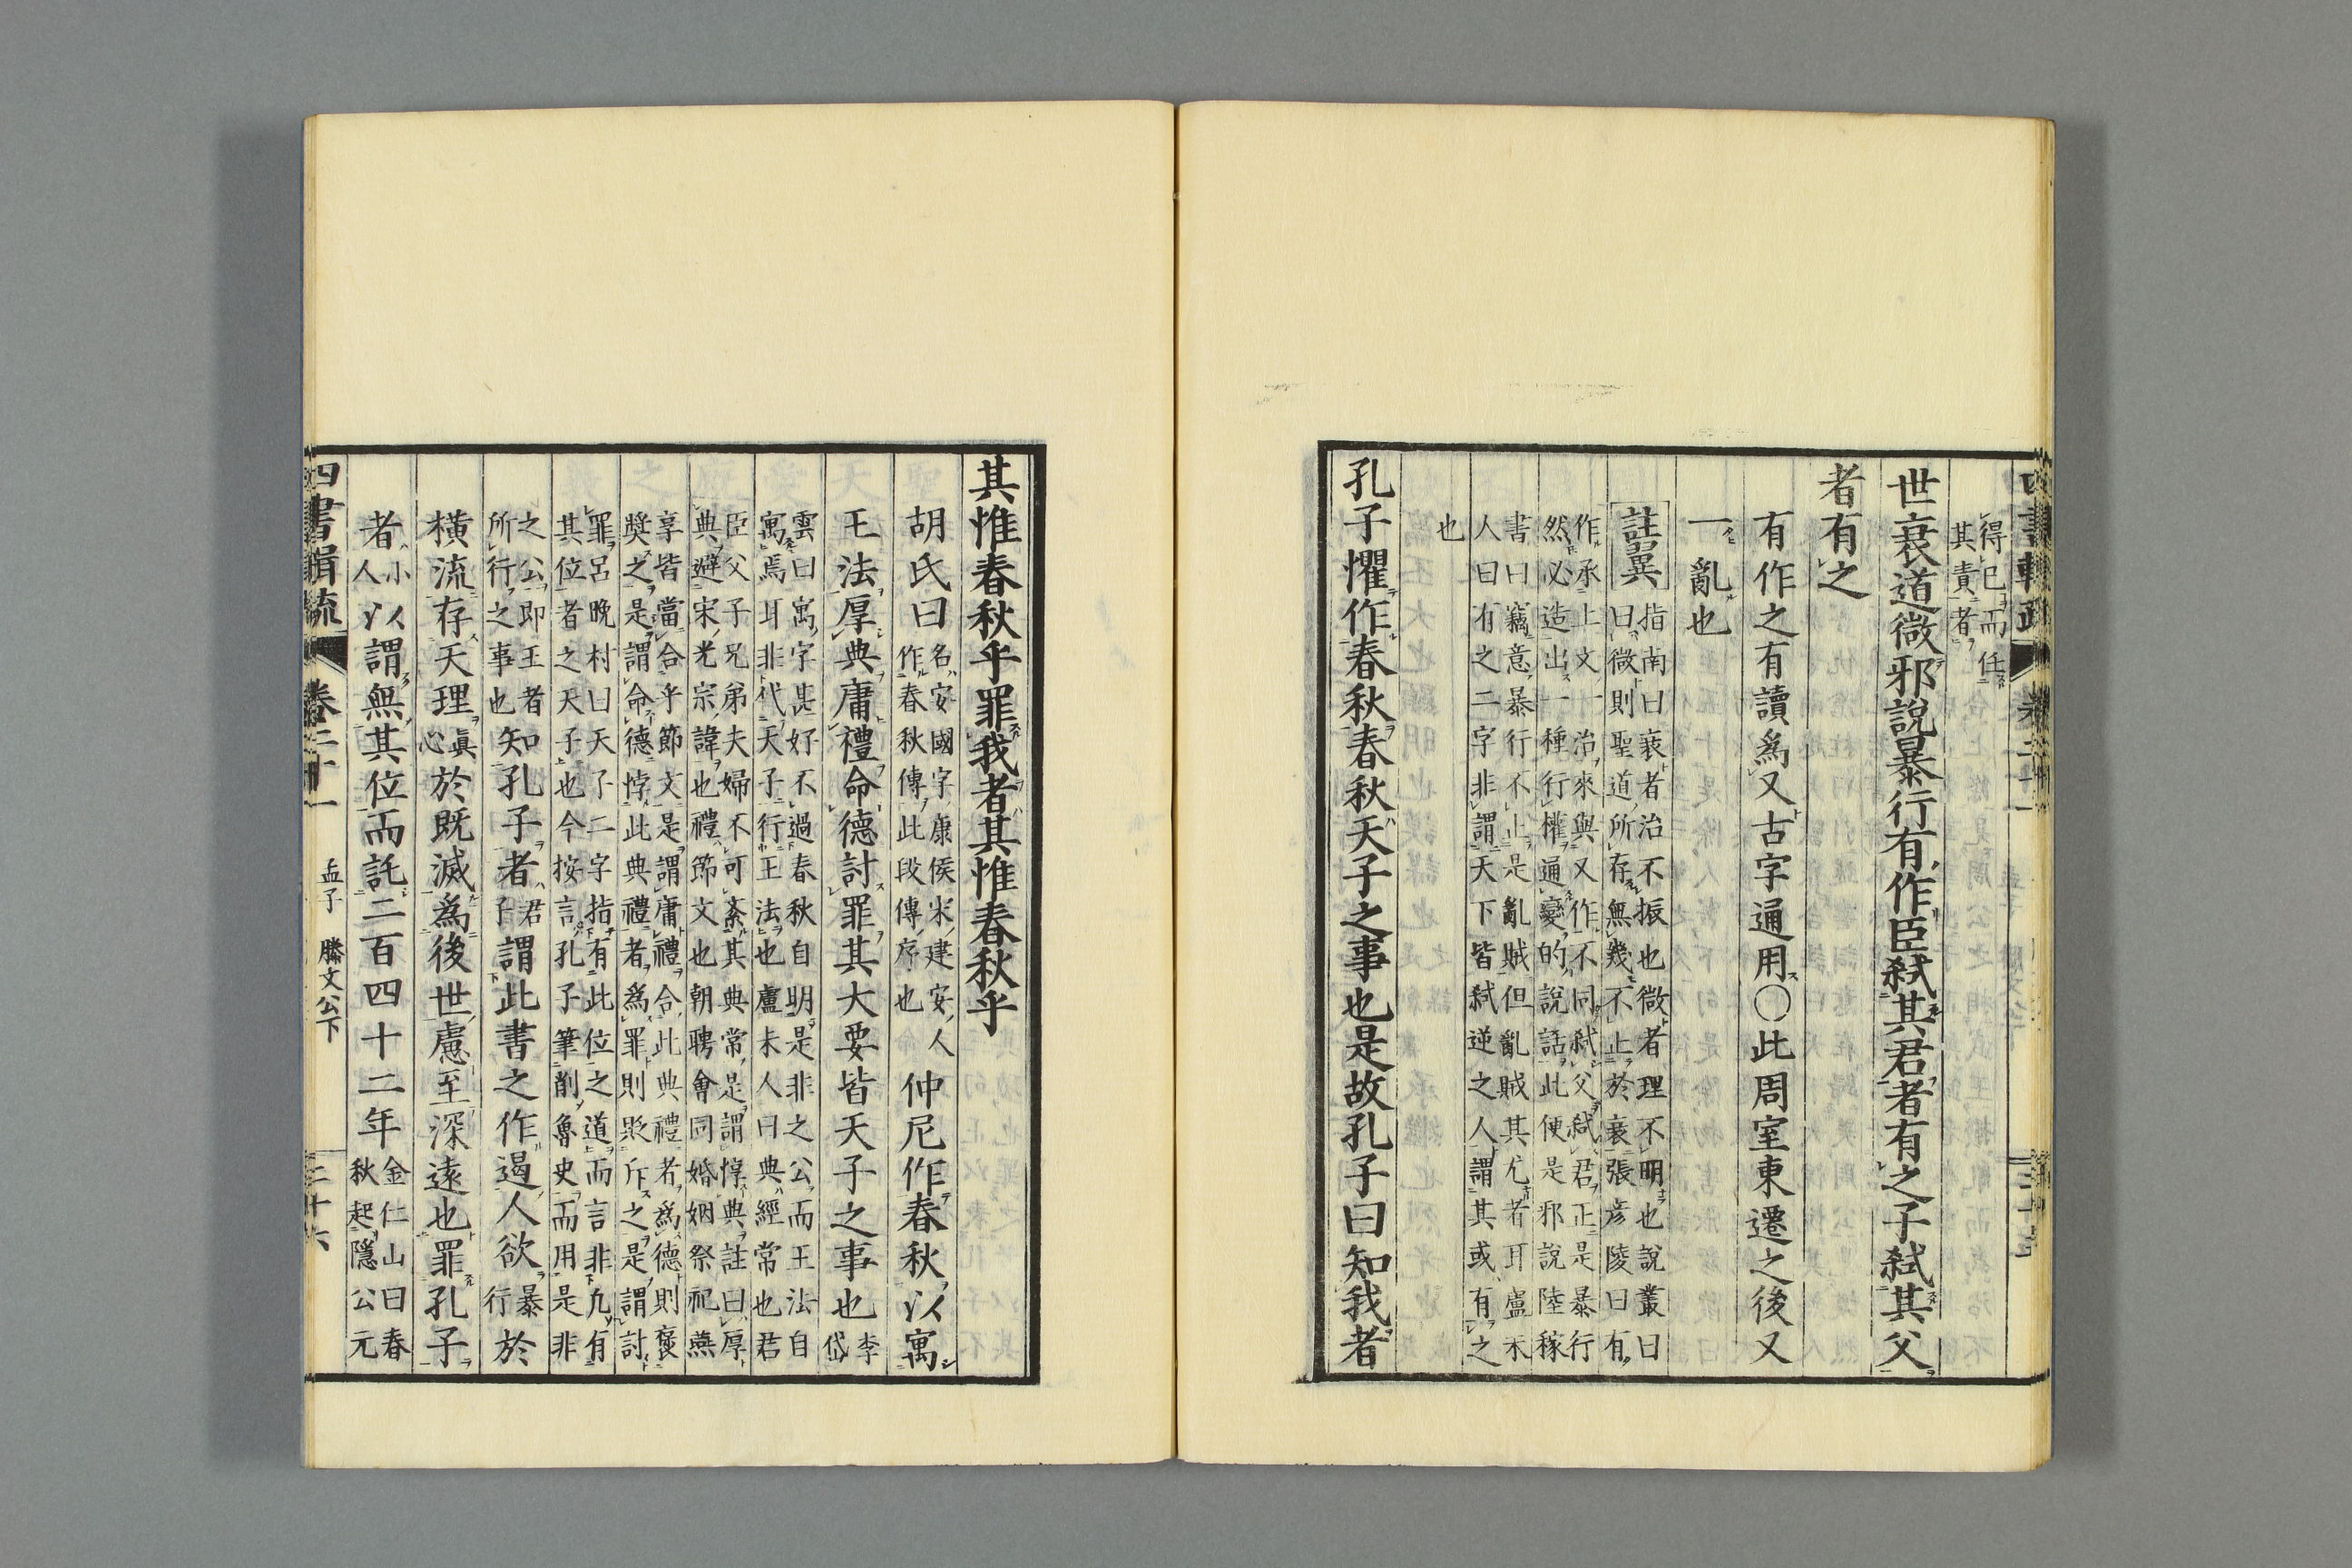 得已而任
其責者
世衰道微邪說暴行有作臣弑其君者有之子弑其父
者有之
有作之有讀爲又古字通用〇此周室東遷之後又
一亂也
註翼
指南曰衰者治不振也微者理不明也說叢曰
曰微則聖道所存無幾不止於衰張彦陵曰有
作承上文一治來與又作不同弑父弑君正是暴行
然必造出一種行權通變的說話此便是邪說陸稼
書曰竊意暴行不止是亂賊但亂賊其尤者耳盧未
人曰有之二字非謂天下皆弑逆之人謂其或有之
也
孔子懼作春秋春秋天子之事也是故孔子曰知我者
其惟春秋乎罪我者其惟春秋乎
胡氏曰名安國字康侯宋建安人作春秋傳此段傳序也仲尼作春秋以寓
王法厚典庸禮命德討罪其大要皆天子之事也李岱
雲曰寓字甚好不過春秋自明是非之公而王法自
寓焉耳非代天子行王法也盧未人曰典經常也君
臣父子兄弟夫婦不可紊其典常是謂惇典註曰厚
典避宋光宗諱也禮節文也朝聘會同婚姻祭祀燕
享皆當合乎節文是謂庸禮合此典禮者爲德則褒
奬之是謂命德悖此典禮者爲罪則貶斥之是謂討
罪呂晚村曰天子二字指有此位之道而言非凡有
其位者之天子也今按言孔子筆削魯史而用是非
之公即王者
所行之事也知孔子者君子謂此書之作遏人欲暴行於
橫流存天理眞心於既滅爲後世慮至深遠也罪孔子
者小人以謂無其位而託二百四十二年金仁山曰春
秋起隱公元
四書輯疏 卷二十一 孟子 滕文公下 二十六